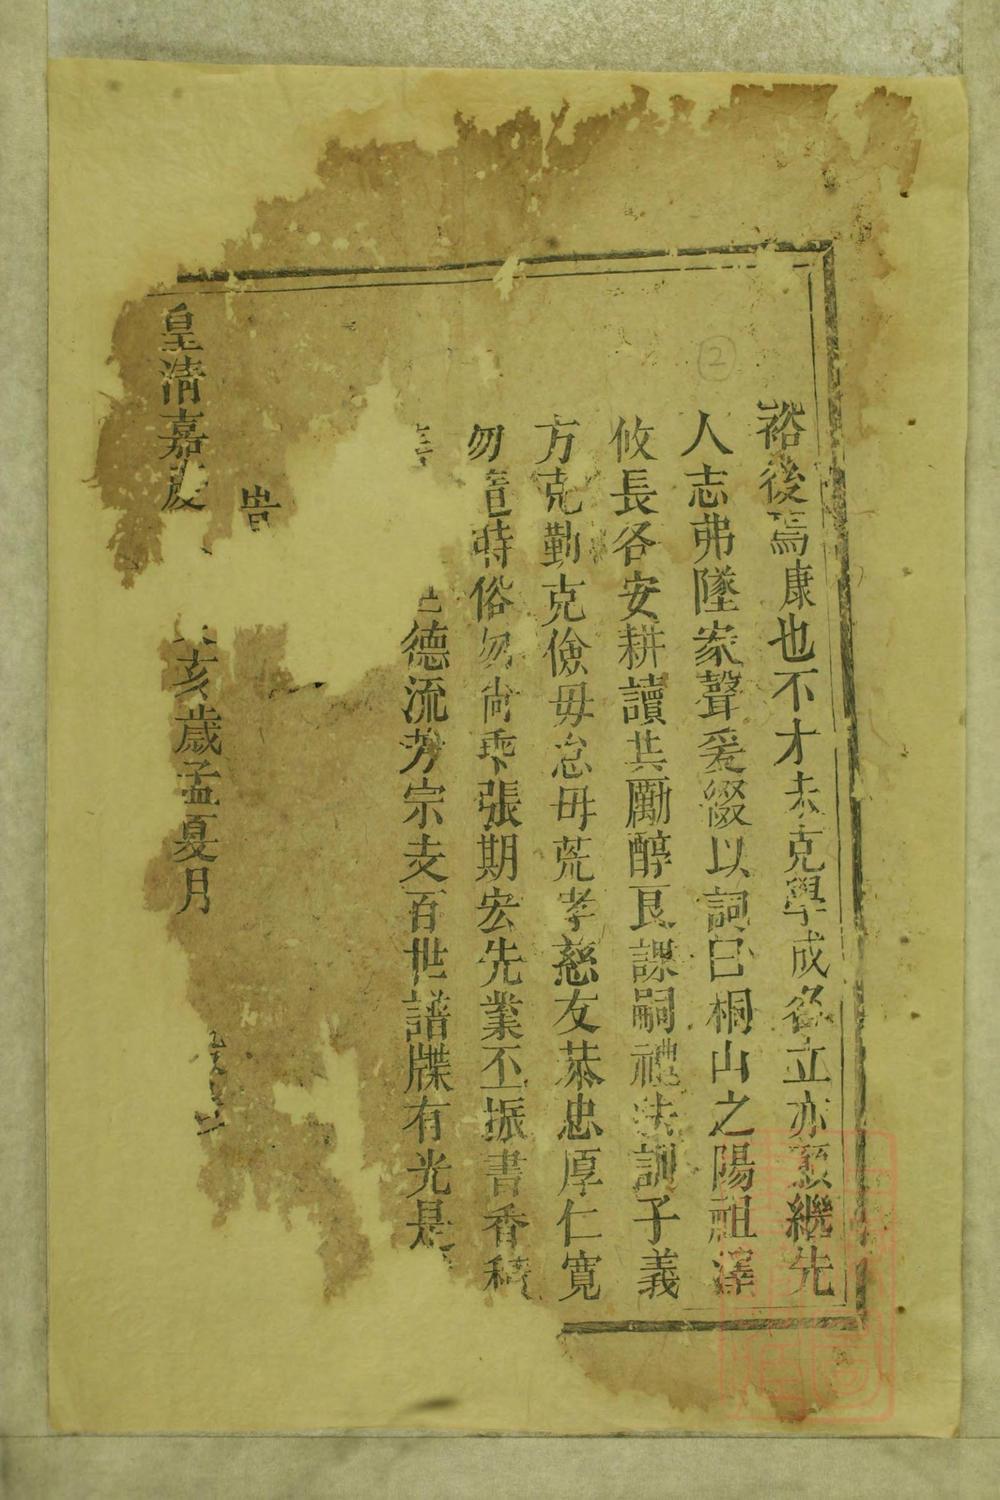 裕後焉康也不才未克學成名立亦願繼先
人志弗墜家聲爰綴以詞曰桐山之陽祖澤
攸長各安耕讀共勵醇良謀嗣禮法訓子義
方克勤克儉毋怠毋荒孝慈友恭忠厚仁寬
勿遵時俗勿尚乖張期宏先業丕振書香積
德流芳宗支百世譜牒有光是
皆
皇清嘉慶
亥歲孟夏月
②